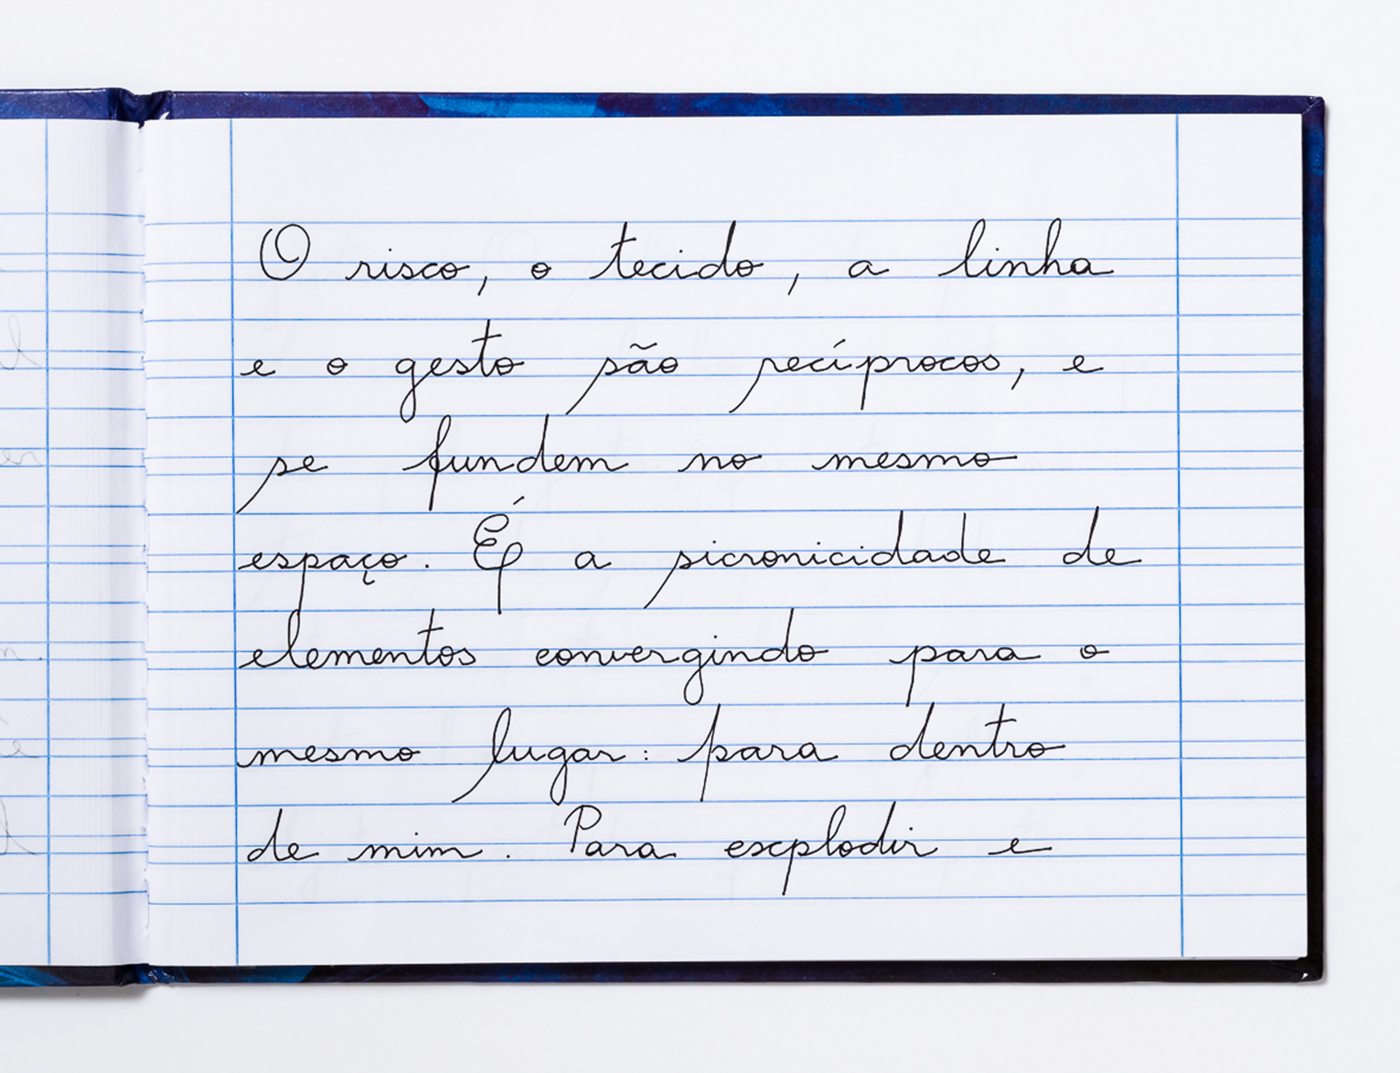 O risco, o tecido, a linha
e o gesto são recíprocos, e
se fundem no mesmo
espaço. É a sicronicidade de
elementos convergindo para o
mesmo lugar: para dentro
de mim. Para explodir e